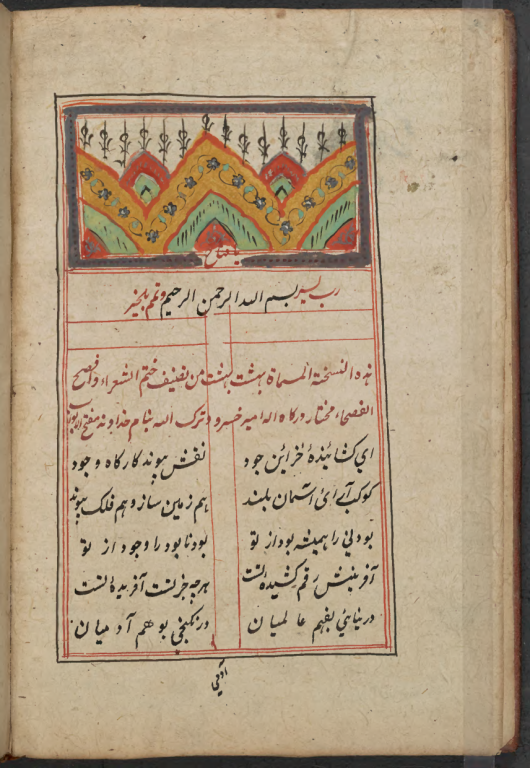 یا فتاح
رب یسر بسم الله الرحمن الرحیم وتمم بالخیر
هذه النسخة المسماة بهشت بهشت من تصنیف ختم الشعراء وافصح
الفصحاء مختار درکاه اله امیر خسرو ترک الله بنام خداوند مفتح الابواب
ای کشاینده خزاین جود
نقش پیوند کارکاه وجود
کوکب آرای آسمان بلند
هم زمین ساز و هم فلک پیوند
بودنی را همیشه بود از تو
بود نابود را وجود از تو
آفرینش رقم کشیده تست
هرچه جز تست آفریده تست
در نیایئ بفهم عالمیان
در نکنجی بوهم آدمیان
آدمی